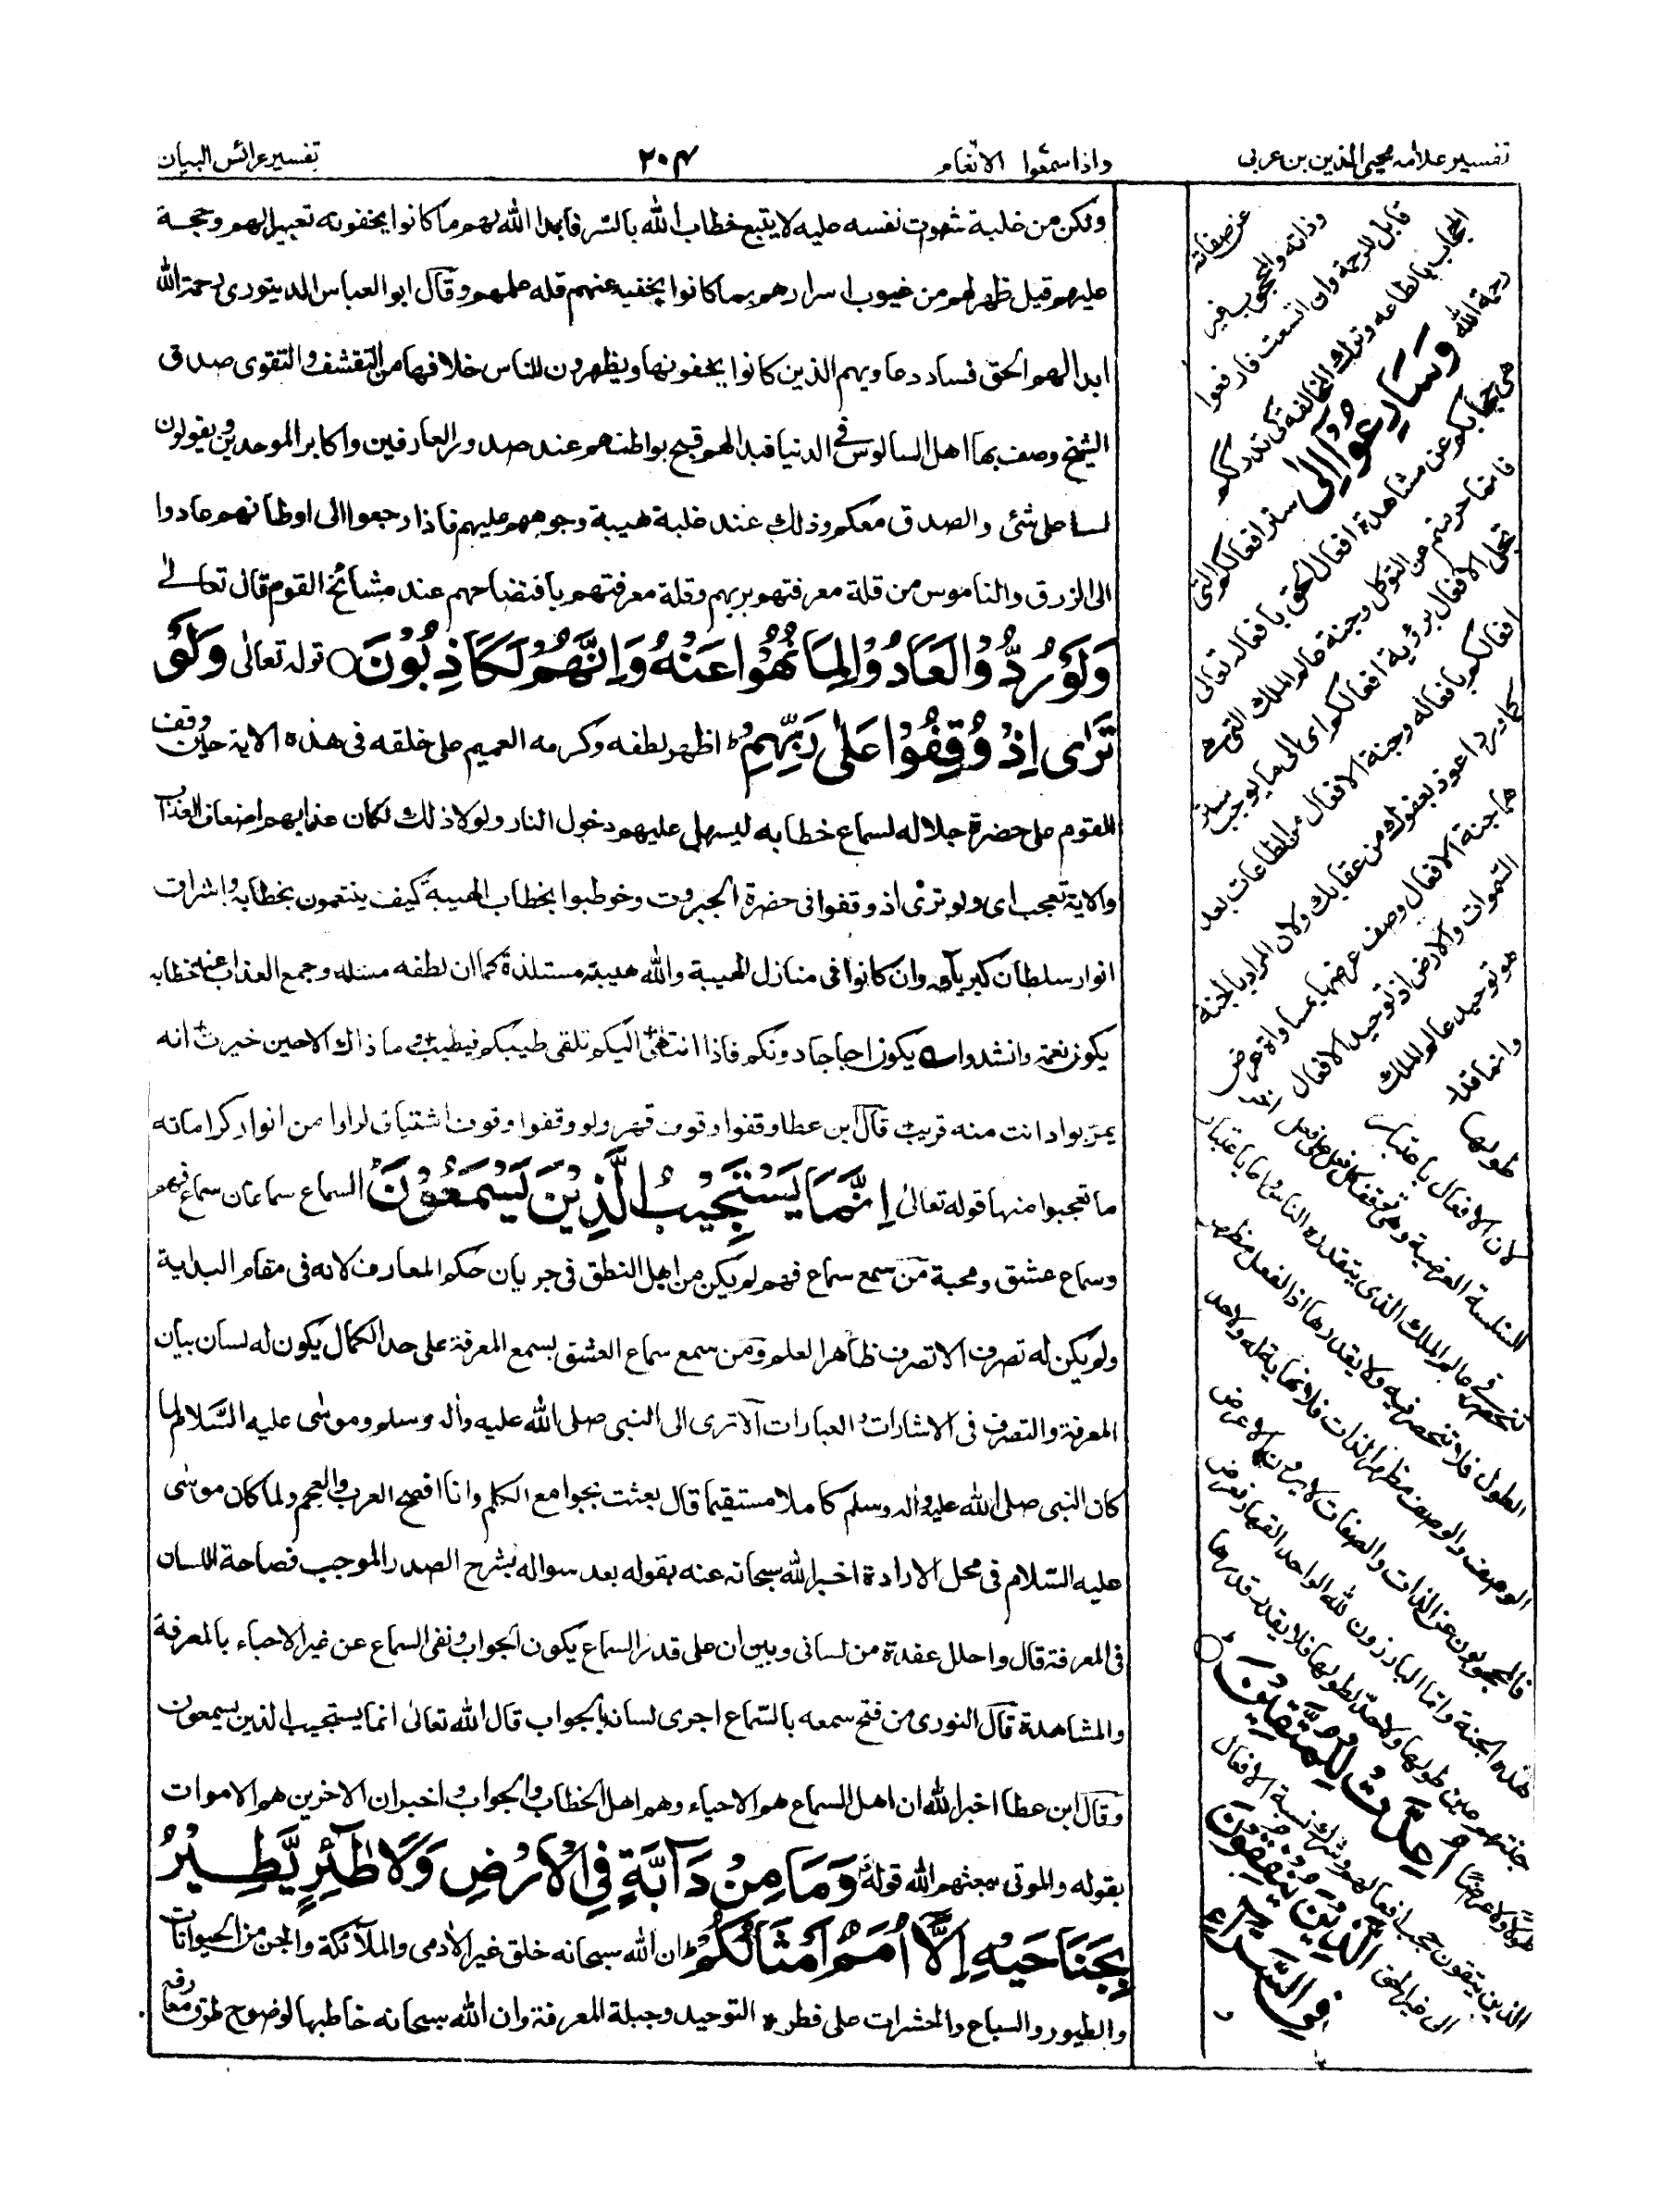 تفسير علامه محيى الدين بن عربى
واذا سمعوا الانعام
٢٠٤
تفسير عرائس البيان
ولكن من غلبة شهوت نفسه عليه لا يتبع خطاب الله بالسر فابدا الله لهم ما كانوا يخفونه تعييرا لهم وحجة
عليهم وقيل ظهر لهم من غيوب اسرارهم بما كانوا يخفيه عنهم قلة علمهم وقال ابو العباس الدينورى رحمة الله
ابدا لهم الحق فساد دعاويهم الذين كانوا يخفونها ويظهرون للناس خلافها من التقشف والتقوى صدق
الشيخ وصف بها اهل السالوس فى الدنيا فبدا لهم قبح بواطنهم عند صدور العارفين واكابر الموحدين ويقولون
لسنا على شئ والصدق معكم وذلك عند غلبة هيبة وجوههم عليهم فاذا رجعوا الى اوطانهم عادوا
الى الزرق والناموس من قلة معرفتهم بربهم وقلة معرفتهم بافتضاحهم عند مشائخ القوم قال تعالى
وَلَوْ رُدُّوْا لَعَادُوْا لِمَا نُهُوْا عَنْهُ وَاِنَّهُمْ لَكَاذِبُوْنَ○ قوله تعالى وَلَوْ
تَرٰى اِذْ وُقِفُوْا عَلٰى رَبِّهِمْ ط اظهر لطفه وكرمه العميم على خلقه فى هذه الاية حين وقف
القوم على حضرة جلاله لسماع خطابه ليسهل عليهم دخول النار ولولا ذلك لكان عذابهم اضعاف العذاب
والاية تعجب اى ولو ترى اذ وقفوا فى حضرة الجبروت وخوطبوا بخطاب الهيبة كيف ينتعمون بخطابه واشراق
انوار سلطان كبريائه وان كانوا فى منازل الهيبة والله هيبته مستلذة كما ان لطفه مسله وجمع العذاب عنه خطابه
يكون نعمة وانشدوا يكون اجاجا دونكم فاذا انتهى اليكم تلقى طيبكم فيطيب وما ذاك الا حين خبرت انه
يمر بواد انت منه قريب قال ابن عطا وقفوا وقوف قهر ولو وقفوا وقوف اشتياق لراوا من انوار كراماته
ما تعجبوا منها قوله تعالى اِنَّمَا يَسْتَجِيْبُ الَّذِيْنَ يَسْمَعُوْنَ ط السماع سماعان سماع فهم
وسماع عشق ومحبة من سمع سماع فهم لم يكن من اهل النطق فى جريان حكم المعارف لانه فى مقام البداية
ولم يكن له تصرف الا تصرف ظاهر العلم ومن سمع سماع العشق بسمع المعرفة على حد الكمال يكون له لسان بيان
المعرفة والتصرف فى الاشارات والعبارات الا ترى الى النبى صلى الله عليه واله وسلم وموسى عليه السلام لما
كان النبى صلى الله عليه واله وسلم كاملا مستقيما قال بعثت بجوامع الكلم وانا افصح العرب والعجم ولما كان موسى
عليه السلام فى محل الارادة اخبر الله سبحانه عنه بقوله بعد سواله بشرح الصدر الموجب فصاحة اللسان
فى المعرفة قال واحلل عقدة من لسانى وبين ان على قدر السماع يكون الجواب ونفى السماع عن غير الاحياء بالمعرفة
والمشاهدة قال النورى من فتح سمعه بالسماع اجرى لسانه بالجواب قال الله تعالى انما يستجيب الذين يسمعون
وقال ابن عطا اخبر الله ان اهل السماع هم الاحياء وهم اهل الخطاب والجواب واخبر ان الاخرين هم الاموات
بقوله والموتى يبعثهم الله قوله وَمَا مِنْ دَآبَّةٍ فِى الْاَرْضِ وَلَا طٰٓئِرٍ يَّطِيْرُ
بِجَنَاحَيْهِ اِلَّآ اُمَمٌ اَمْثَالُكُمْ ط ان الله سبحانه خلق غير الادمى والملائكة والجن من الحيوانات
والطيور والسباع والحشرات على فطرة التوحيد وجبلة المعرفة وان الله سبحانه خاطبها لوضوح طرق معارفه
عن صفاته
وذاته والمحجوب غير
قابل للرحمة وان اتسعت فارفعوا
الحجاب بالطاعه وترك المخالفة كى تدرككم
رحمة الله وَسَارِعُوْٓا اِلٰى ستر افعالكم التى
هى حجابكم عن مشاهدة افعال الحق بافعاله تعالى
فانما حرمتم من التوكل وجنة عالم الملك التى هى
تجلى الافعال برؤية افعالكم اى الى ما يوجب ستر
افعالكم بافعاله وجنة الافعال من الطاعات بعد
كما ورد اعوذ بعفوك من عقابك ولان المراد بالجنة
هنا جنة الافعال وصف عرضها بمساواة عرض
السموات والارض اذ توحيد الافعال
هو توحيد عالم الملك
وانما قدر
طولها
لان الافعال باعتبار
السلسة العرضية وهى توقف كل فعل على فعل اخر
تنحصر فى عالم الملك الذى يتقدره الناس واما باعتبار
الطول فلا تنحصر فيه ولا يقدرها اذ الفعل مظهر
الوصف والوصف مظهر الذات فلا نهاية له ولا حد
فالمحجوبون عن الذات والصفات لا يرون الا عرض
هذه الجنة واما البارزون لله الواحد القهار فعرض
جنتهم عين طولها ولا حد لطولها فلا يقدر قدرها
طولا ولا عرضا اُعِدَّتْ لِلْمُتَّقِيْنَ ○
الذين يتقون حجب افعالهم وشرك نسبة الافعال
الى غير الحق الَّذِيْنَ يُنْفِقُوْنَ
فِى السَّرَّآءِ